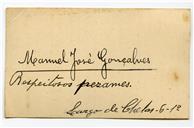 Manuel José Gonçalves
Respeitosos pezames.
Largo de Chelas-6-1º